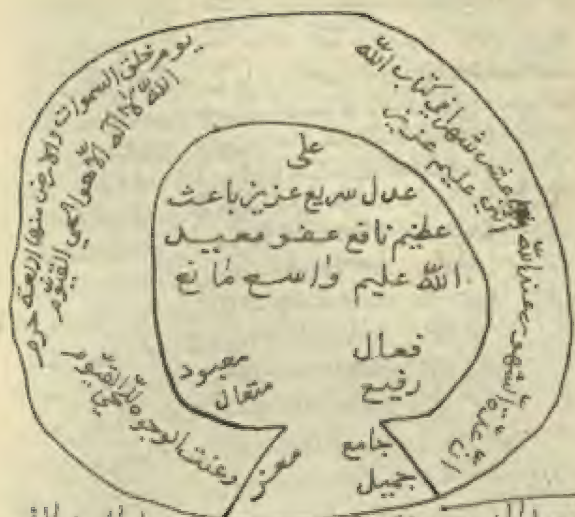 ان عدة الشهور عند الله اثنا عشر شهرا في كتاب الله
يوم خلق السموات والارض منها اربعة حرم
الله لا اله الا هو الحي القيوم
وعنت الوجوه للحي القيوم
على
عدل سريع عزيز باعث
عظيم نافع عفو معيد
الله عليم واسع مانع
فعال
رفيع
معبود
متعال
جامع
جميل
معز